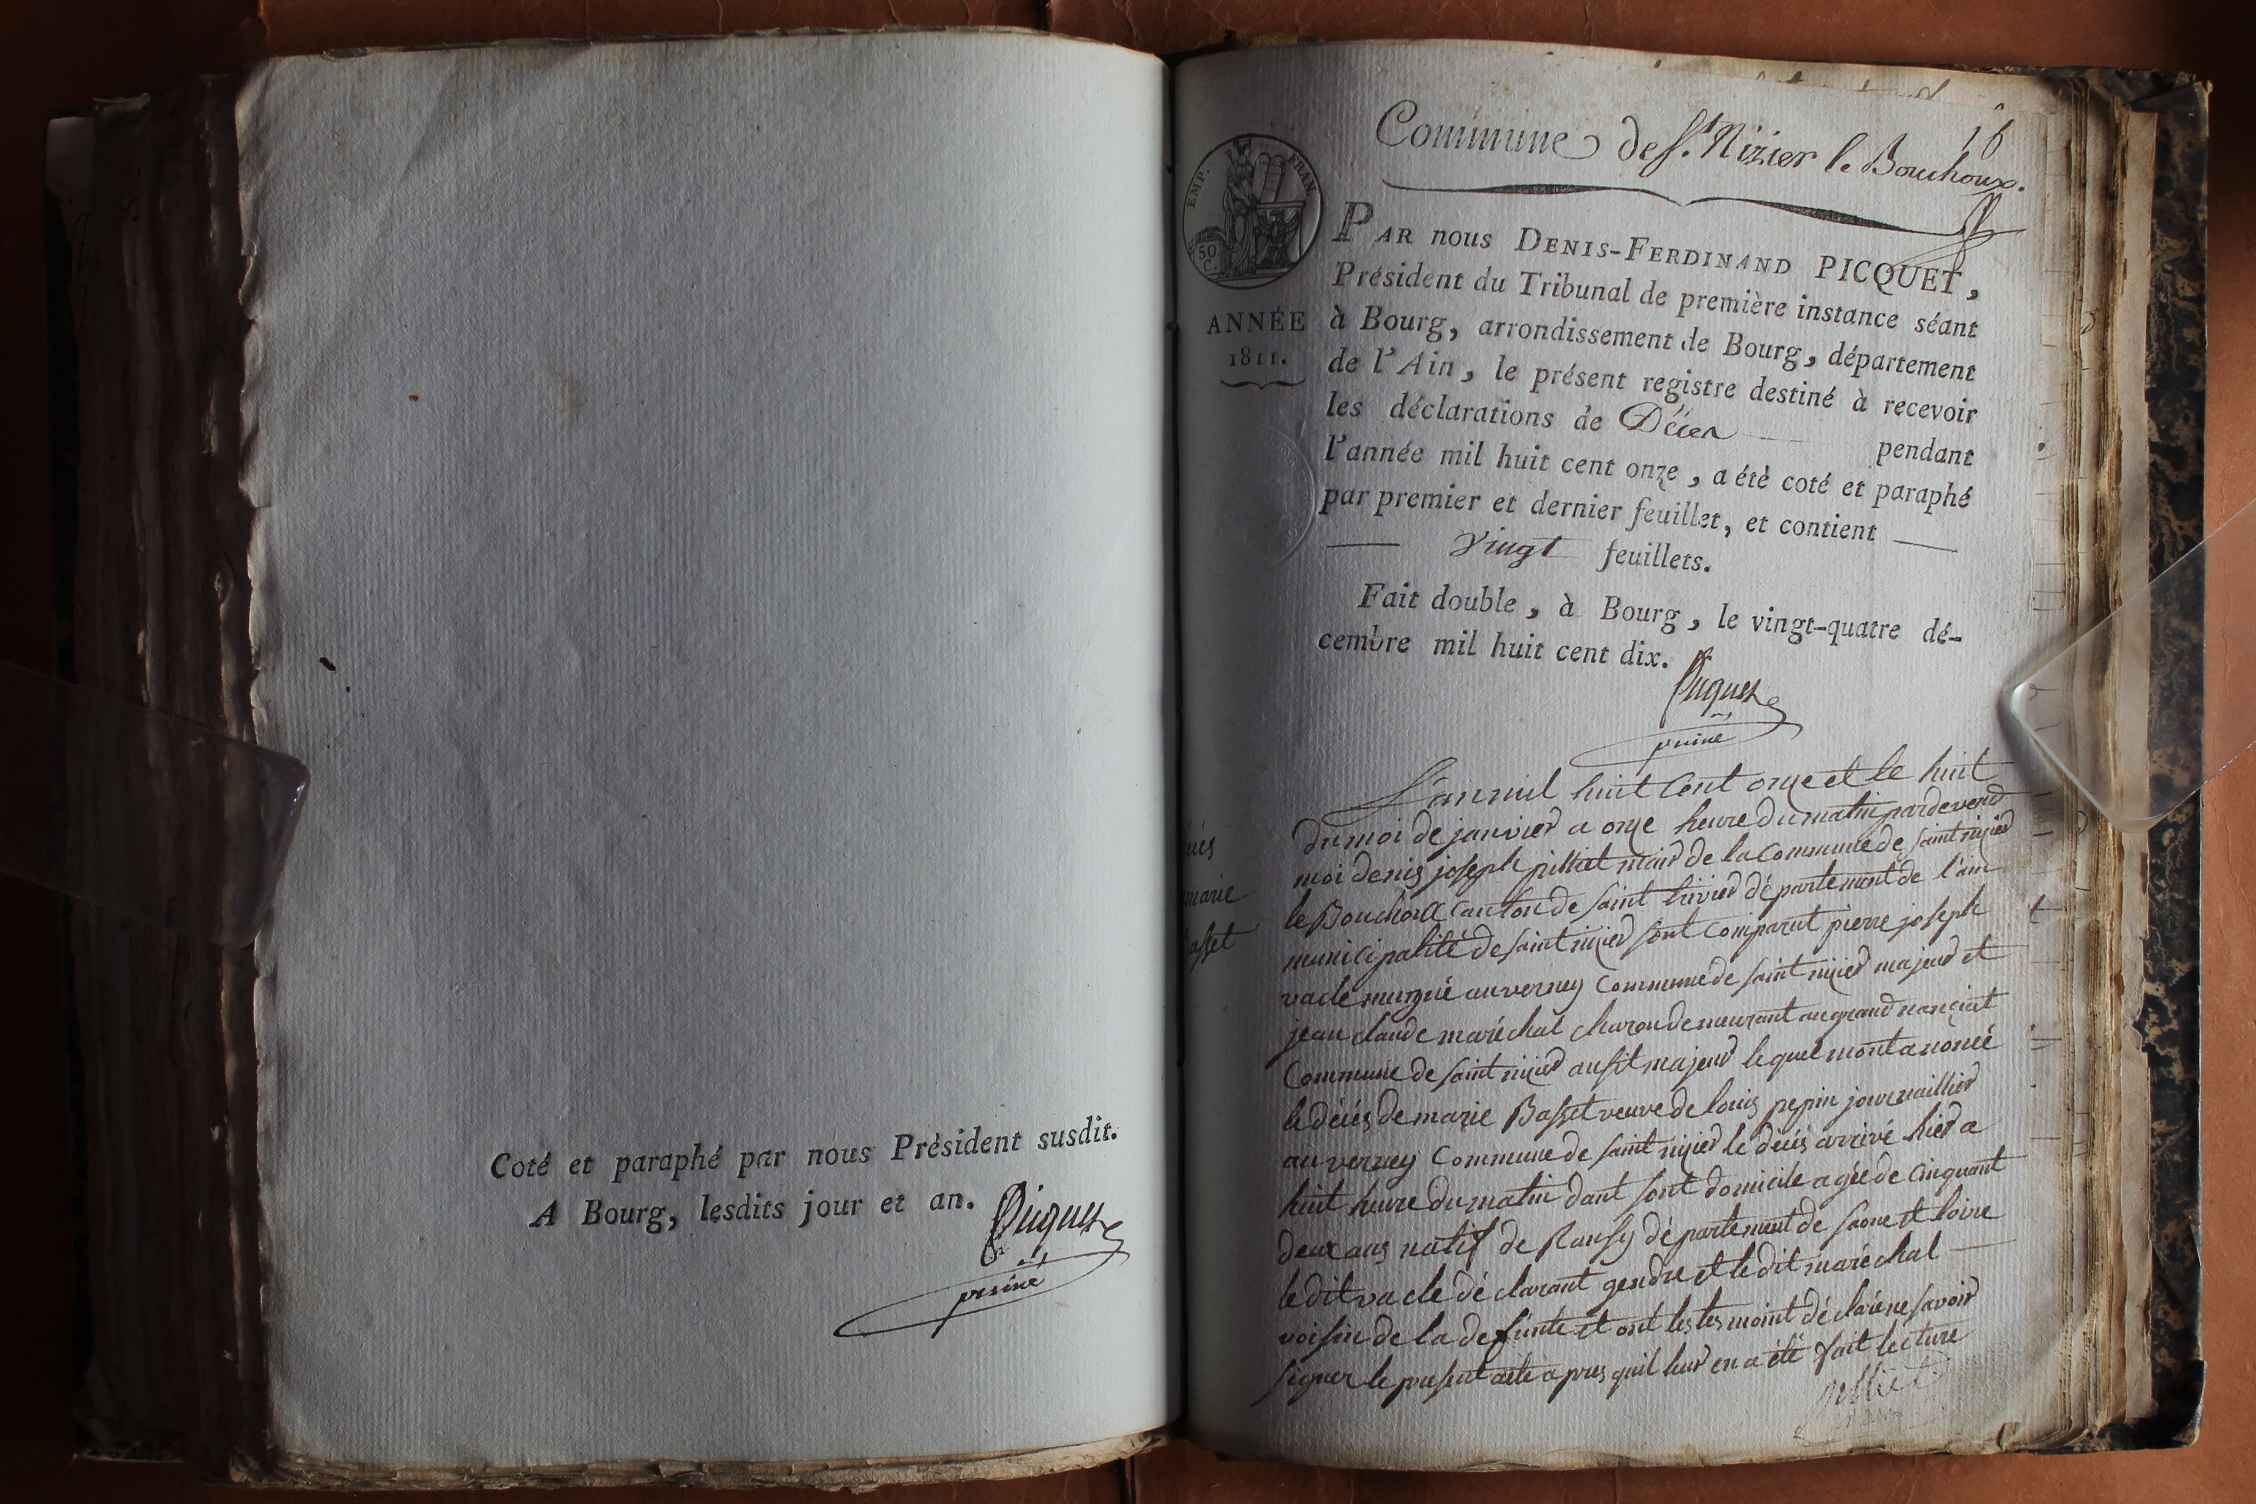 Coté et paraphé par nous Président susdit.
A Bourg, lesdits jour et an.
Picquet
Commune de St. Nizier le Bouchoux.
EMP. FRAN
50
C.
ANNÉE
1811.
PAR nous DENIS-FERDINAND PICQUET,
Président du Tribunal de première instance séant
à Bourg, arrondissement de Bourg, département
de l'Ain, le présent registre destiné à recevoir
les déclarations de Décès pendant
l'année mil huit cent onze, a étè coté et paraphé
par premier et dernier feuillet, et contient
vingt feuillets.
Fait double, à Bourg, le vingt-quatre dé-
cembre mil huit cent dix.
Picquet
marie
asset
L'an mil huit Cent onze et le huit
du moi de janvier a onze heure du matin pardevend
moi denis joseph pilliet maire de la Commune de saint nizier
le Bouchoux Canton de saint trivier département de l'ain
municipalité de saint nizier sont Comparut pierre joseph
vacle au verney Commune de saint nizier majeur et
jean claude maréchal charon demeurant au grand nanciat
Commune de saint nizier ausit majeur lequel mont anoncé
le décés de marie Basset veuve de louis pepin journaillier
au verney Commune de saint nizier le décés arrivé hier a
huit heure du matin dant sont domicile agée de Cinquant
deux ans natif de Ransy département de saone et loire
le dit vacle déclarant gendre et le dit maréchal
voisin de la defunte et ont les tesmoint déclaré ne savoir
signer le present acte apres quil leur en a été fait lecture
pilliet